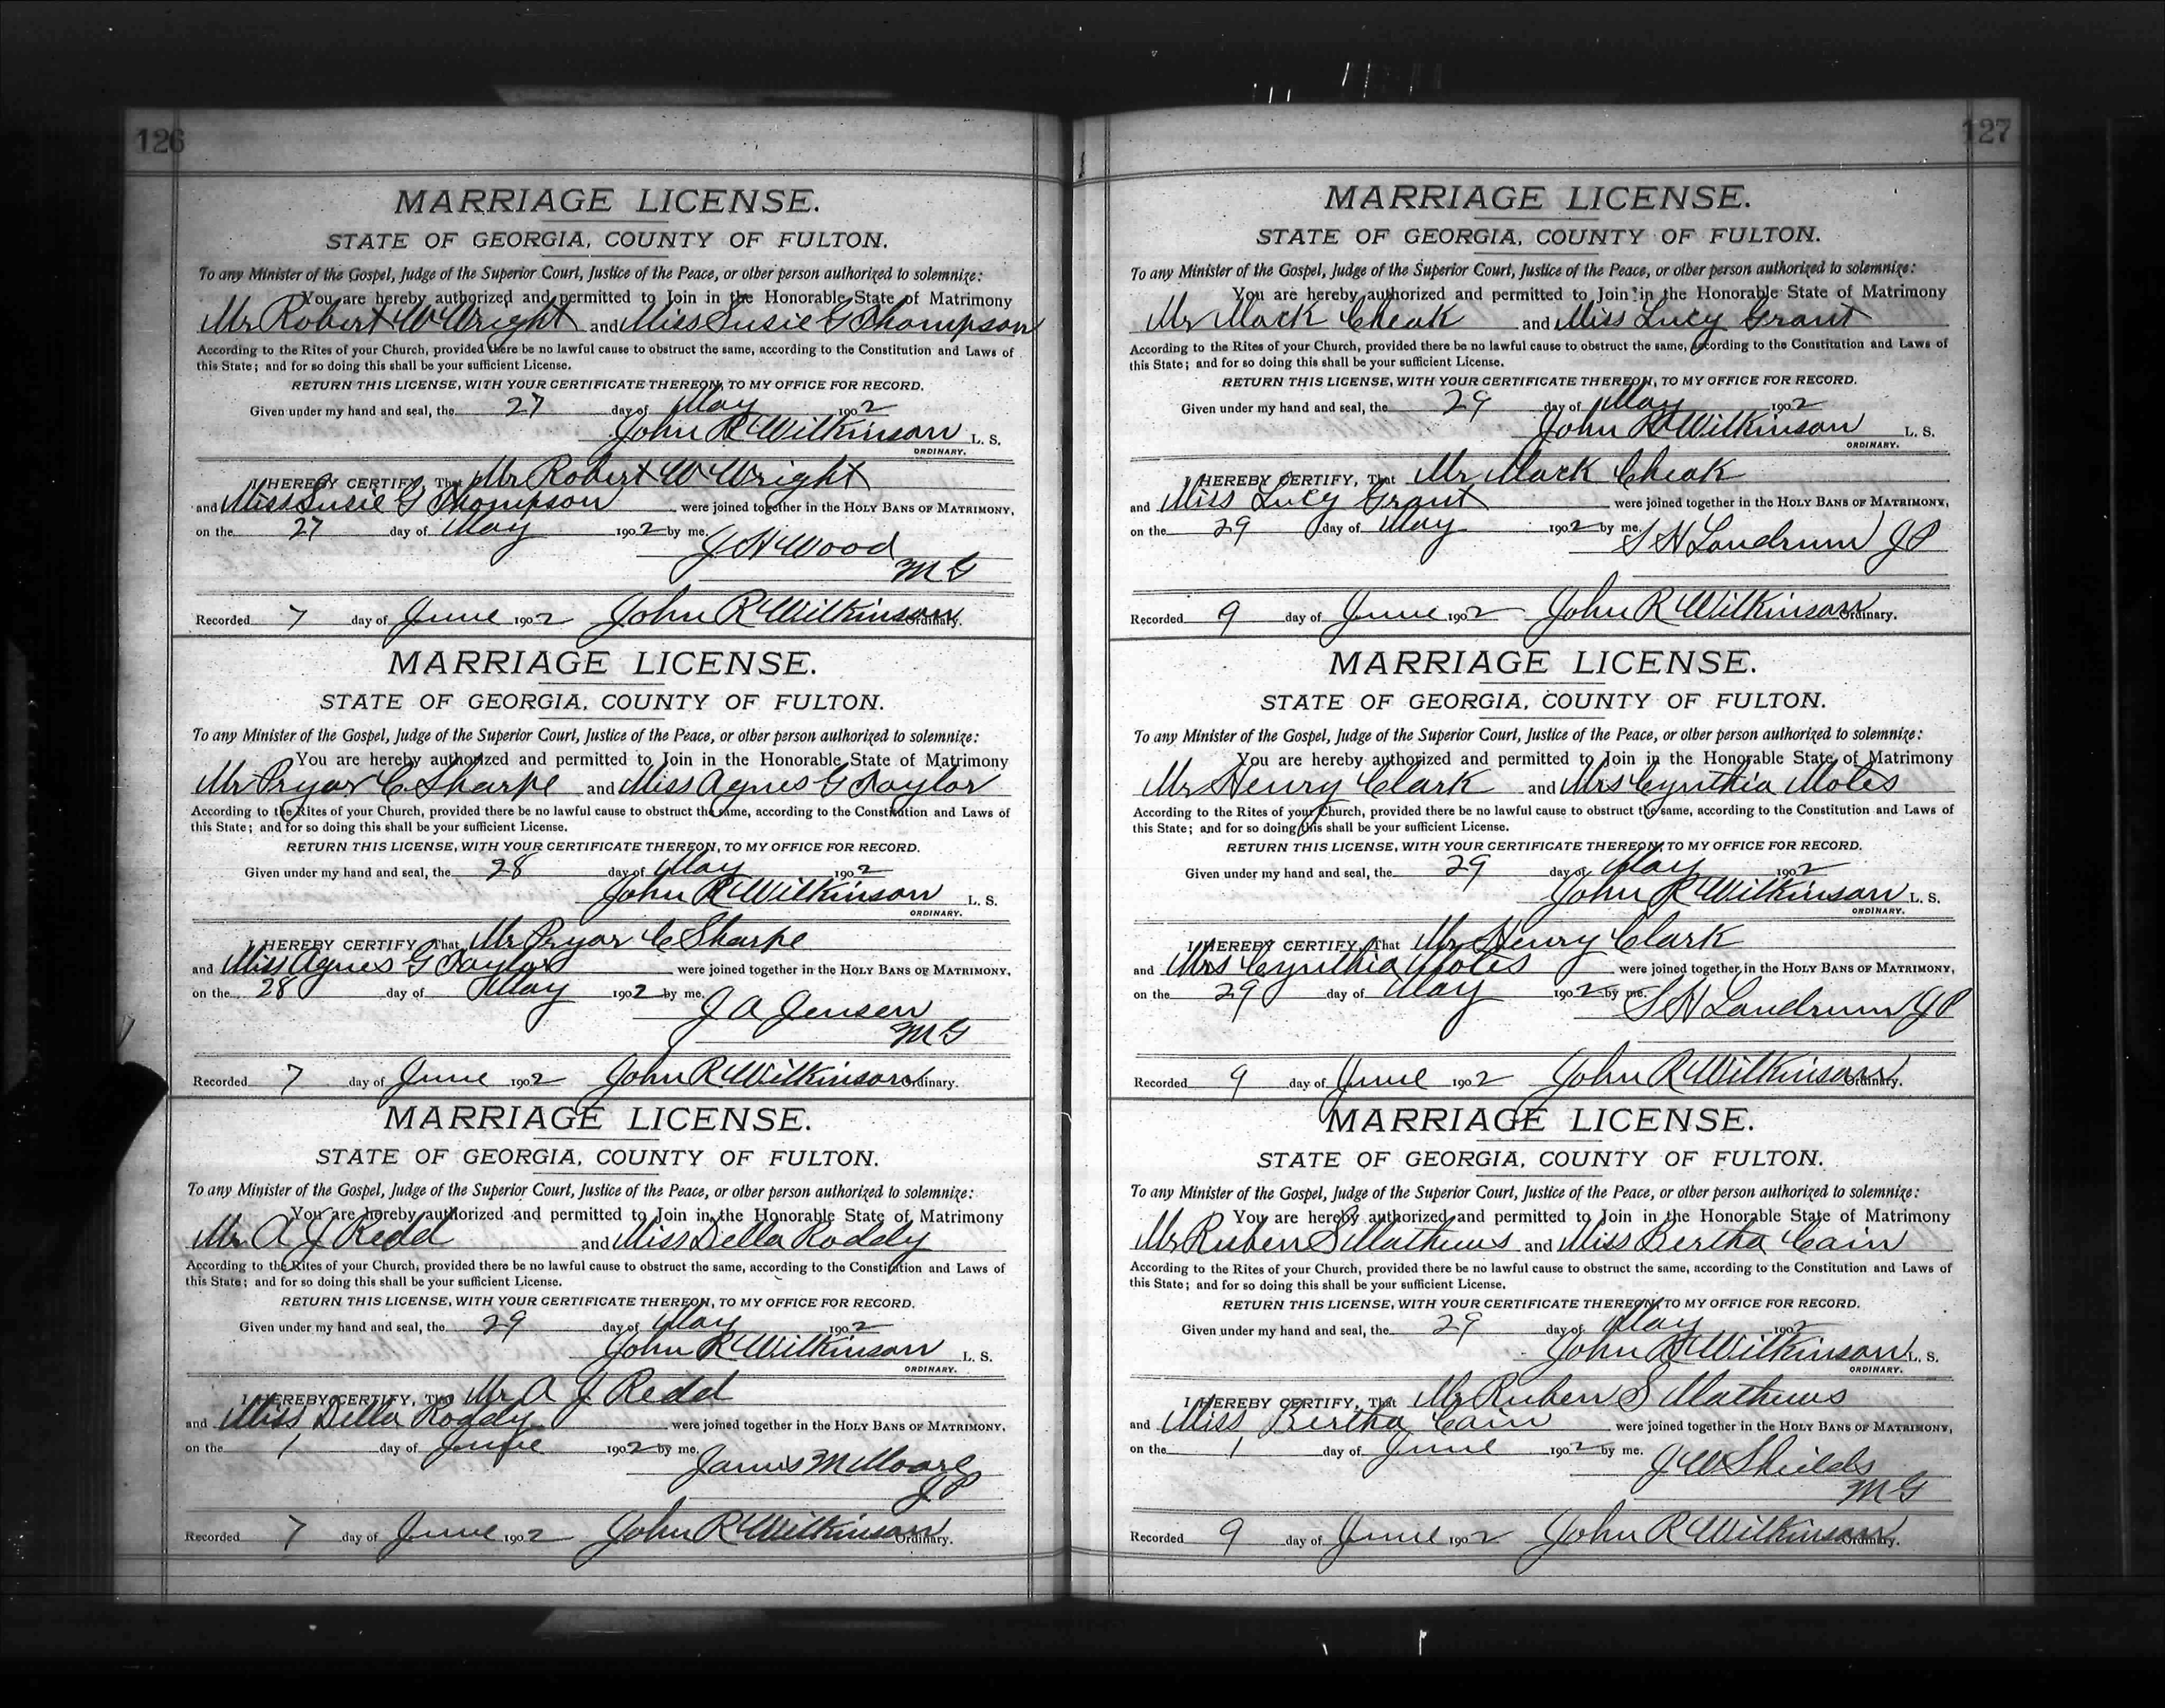 126
MARRIAGE LICENSE.
STATE OF GEORGIA, COUNTY OF FULTON.
To any Minister of the Gospel, Judge of the Superior Court, Justice of the Peace, or other person authorized to solemnize:
You are hereby authorized and permitted to Join in the Honorable State of Matrimony
Mr Robert W Wright and Miss Susie G Thompson
According to the Rites of your Church, provided there be no lawful cause to obstruct the same, according to the Constitution and Laws of
this State; and for so doing this shall be your sufficient License.
RETURN THIS LICENSE, WITH YOUR CERTIFICATE THEREON, TO MY OFFICE FOR RECORD.
Given under my hand and seal, the 27 day of May 1902
John R Wilkinson L. S.
ORDINARY.
I HEREBY CERTIFY, That Mr Robert W Wright
and Miss Susie G Thompson were joined together in the HOLY BANS OF MATRIMONY,
on the 27 day of May 1902 by me.
J H Wood
M G
Recorded 7 day of June 1902 John R Wilkinson Ordinary.
MARRIAGE LICENSE.
STATE OF GEORGIA, COUNTY OF FULTON.
To any Minister of the Gospel, Judge of the Superior Court, Justice of the Peace, or other person authorized to solemnize:
You are hereby authorized and permitted to Join in the Honorable State of Matrimony
Mr Pryor C Sharpe and Miss Agnes G Taylor
According to the Rites of your Church, provided there be no lawful cause to obstruct the same, according to the Constitution and Laws of
this State; and for so doing this shall be your sufficient License.
RETURN THIS LICENSE, WITH YOUR CERTIFICATE THEREON, TO MY OFFICE FOR RECORD.
Given under my hand and seal, the 28 day of May 1902
John R Wilkinson L. S.
ORDINARY.
I HEREBY CERTIFY, That Mr Pryor C Sharpe
and Miss Agnes G Taylor were joined together in the HOLY BANS OF MATRIMONY,
on the 28 day of May 1902 by me.
J A Jensen
M G
Recorded 7 day of June 1902 John R Wilkinson Ordinary.
MARRIAGE LICENSE.
STATE OF GEORGIA, COUNTY OF FULTON.
To any Minister of the Gospel, Judge of the Superior Court, Justice of the Peace, or other person authorized to solemnize:
You are hereby authorized and permitted to Join in the Honorable State of Matrimony
Mr A J Redd and Miss Della Roddy
According to the Rites of your Church, provided there be no lawful cause to obstruct the same, according to the Constitution and Laws of
this State; and for so doing this shall be your sufficient License.
RETURN THIS LICENSE, WITH YOUR CERTIFICATE THEREON, TO MY OFFICE FOR RECORD.
Given under my hand and seal, the 29 day of May 1902
John R Wilkinson L. S.
ORDINARY.
I HEREBY CERTIFY, That Mr A J Redd
and Miss Della Roddy were joined together in the HOLY BANS OF MATRIMONY,
on the 1 day of June 1902 by me.
James M Moore
J P
Recorded 7 day of June 1902 John R Wilkinson Ordinary.
127
MARRIAGE LICENSE.
STATE OF GEORGIA, COUNTY OF FULTON.
To any Minister of the Gospel, Judge of the Superior Court, Justice of the Peace, or other person authorized to solemnize:
You are hereby authorized and permitted to Join in the Honorable State of Matrimony
Mr Mack Cheak and Miss Lucy Grant
According to the Rites of your Church, provided there be no lawful cause to obstruct the same, according to the Constitution and Laws of
this State; and for so doing this shall be your sufficient License.
RETURN THIS LICENSE, WITH YOUR CERTIFICATE THEREON, TO MY OFFICE FOR RECORD.
Given under my hand and seal, the 29 day of May 1902
John R Wilkinson L. S.
ORDINARY.
I HEREBY CERTIFY, That Mr Mack Cheak
and Miss Lucy Grant were joined together in the HOLY BANS OF MATRIMONY,
on the 29 day of May 1902 by me.
S H Landrum J P
Recorded 9 day of June 1902 John R Wilkinson Ordinary.
MARRIAGE LICENSE.
STATE OF GEORGIA, COUNTY OF FULTON.
To any Minister of the Gospel, Judge of the Superior Court, Justice of the Peace, or other person authorized to solemnize:
You are hereby authorized and permitted to Join in the Honorable State of Matrimony
Mr Henry Clark and Mrs Cynthia Motes
According to the Rites of your Church, provided there be no lawful cause to obstruct the same, according to the Constitution and Laws of
this State; and for so doing this shall be your sufficient License.
RETURN THIS LICENSE, WITH YOUR CERTIFICATE THEREON, TO MY OFFICE FOR RECORD.
Given under my hand and seal, the 29 day of May 1902
John R Wilkinson L. S.
ORDINARY.
I HEREBY CERTIFY, That Mr Henry Clark
and Mrs Cynthia Motes were joined together in the HOLY BANS OF MATRIMONY,
on the 29 day of May 1902 by me.
S H Landrum J P
Recorded 9 day of June 1902 John R Wilkinson Ordinary.
MARRIAGE LICENSE.
STATE OF GEORGIA, COUNTY OF FULTON.
To any Minister of the Gospel, Judge of the Superior Court, Justice of the Peace, or other person authorized to solemnize:
You are hereby authorized and permitted to Join in the Honorable State of Matrimony
Mr Ruben S Mathews and Miss Bertha Cain
According to the Rites of your Church, provided there be no lawful cause to obstruct the same, according to the Constitution and Laws of
this State; and for so doing this shall be your sufficient License.
RETURN THIS LICENSE, WITH YOUR CERTIFICATE THEREON, TO MY OFFICE FOR RECORD.
Given under my hand and seal, the 29 day of May 1902
John R Wilkinson L. S.
ORDINARY.
I HEREBY CERTIFY, That Mr Ruben S Mathews
and Miss Bertha Cain were joined together in the HOLY BANS OF MATRIMONY,
on the 1 day of June 1902 by me.
J W Shields
M G
Recorded 9 day of June 1902 John R Wilkinson Ordinary.